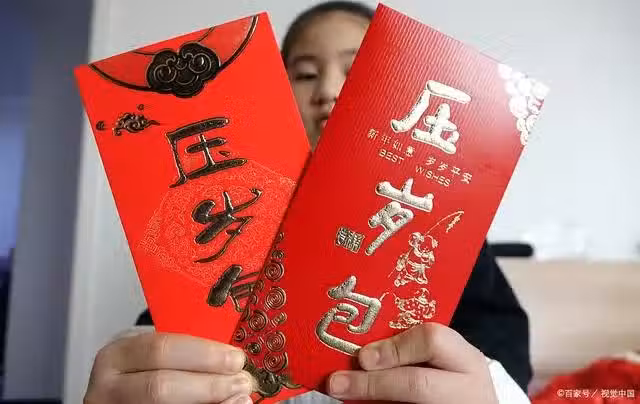 压
岁
包
压
新年如意 岁岁平安
BEST WISHES
岁
包
©百家号／视觉中国